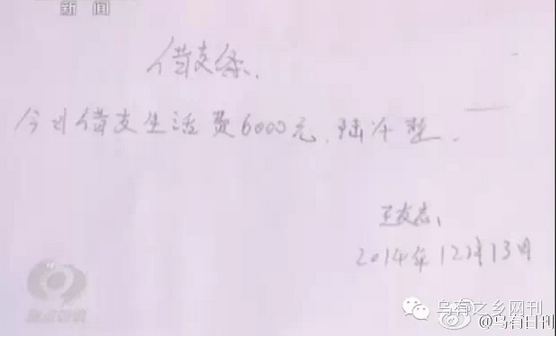 新闻
借支条
今日借支生活费6000元,陆仟整.
王友志
2014年12月13日
焦点访谈
乌有之乡网刊
@乌有日刊